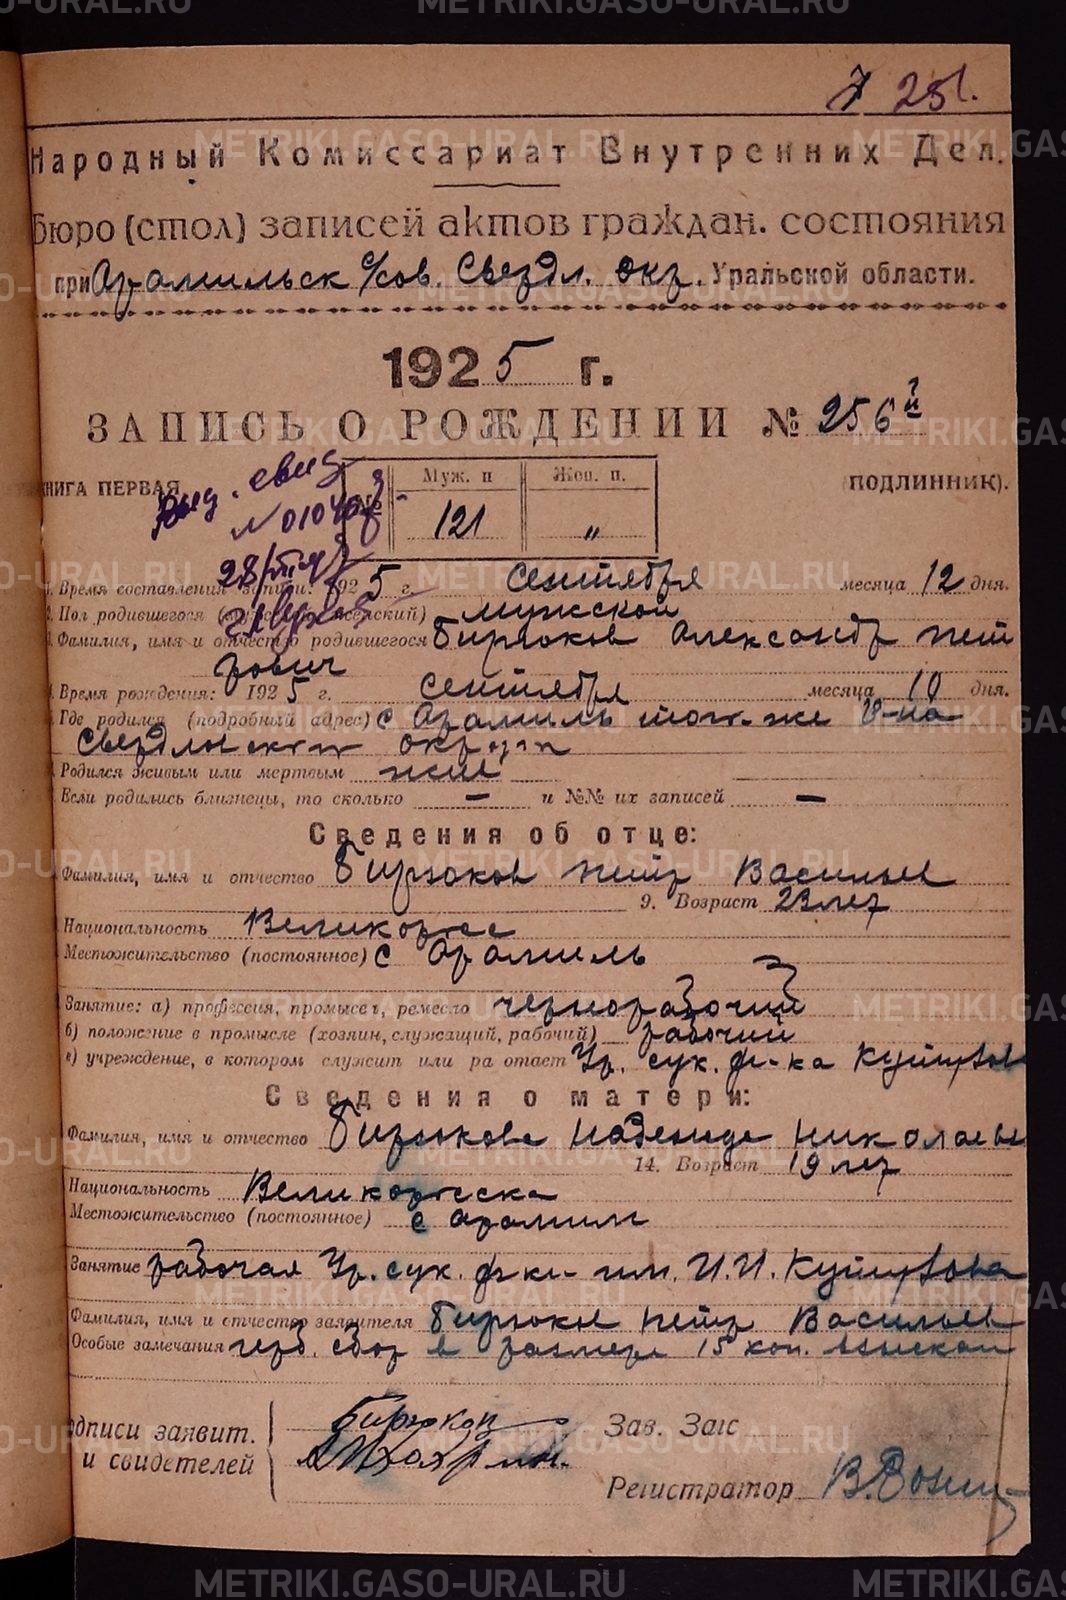 № 251.
Народный Комиссариат Внутренних Дел.
Бюро (стол) записей актов граждан. состояния
при Арамильск с/сов. Свердл. окр. Уральской области.
1925 г.
ЗАПИСЬ О РОЖДЕНИИ № 256 й
КНИГА ПЕРВАЯ ПОДЛИННИК).
Муж. п Жен. п.
№№ 121 „
Выд. свид
N 01040
28/
1. Время составления записи: 1925 г. сентября месяца 12 дня.
2. Пол родившегося (мужской, женский) мужской
3. Фамилия, имя и отчество родившегося Бирюков Александр Пет
рович
4. Время рождения: 1925 г. сентября месяца 10 дня.
5. Где родился (подробный адрес) с Арамиль того-же р-на
Свердловского округа
Родился живым или мертвым жив
Если родились близнецы, то сколько — и №№ их записей —
Сведения об отце:
Фамилия, имя и отчество Бирюков Петр Васильев
9. Возраст 23 лет
Национальность Великорус
Местожительство (постоянное) с Арамиль
Занятие: а) профессия, промысел, ремесло чернорабочий
б) положение в промысле (хозяин, служащий, рабочий) рабочий
в) учреждение, в котором служит или ра отает Ур. сук. ф-ка
Сведения о матери:
Фамилия, имя и отчество Бирюкова Надежда Николаевн
14. Возраст 19 лет
Национальность Великорусска
Местожительство (постоянное) с Арамили
Занятие рабочая Ур. сук. ф-ки им. И.И.
Фамилия, имя и отчество заявителя Бирюков Петр Васильев
Особые замечания герб. сбор в размере 15 коп. взыскан
одписи заявит. Бирюков Зав. Загс
и свидетелей
Регистратор
METRIKI.GASO-URAL.RU